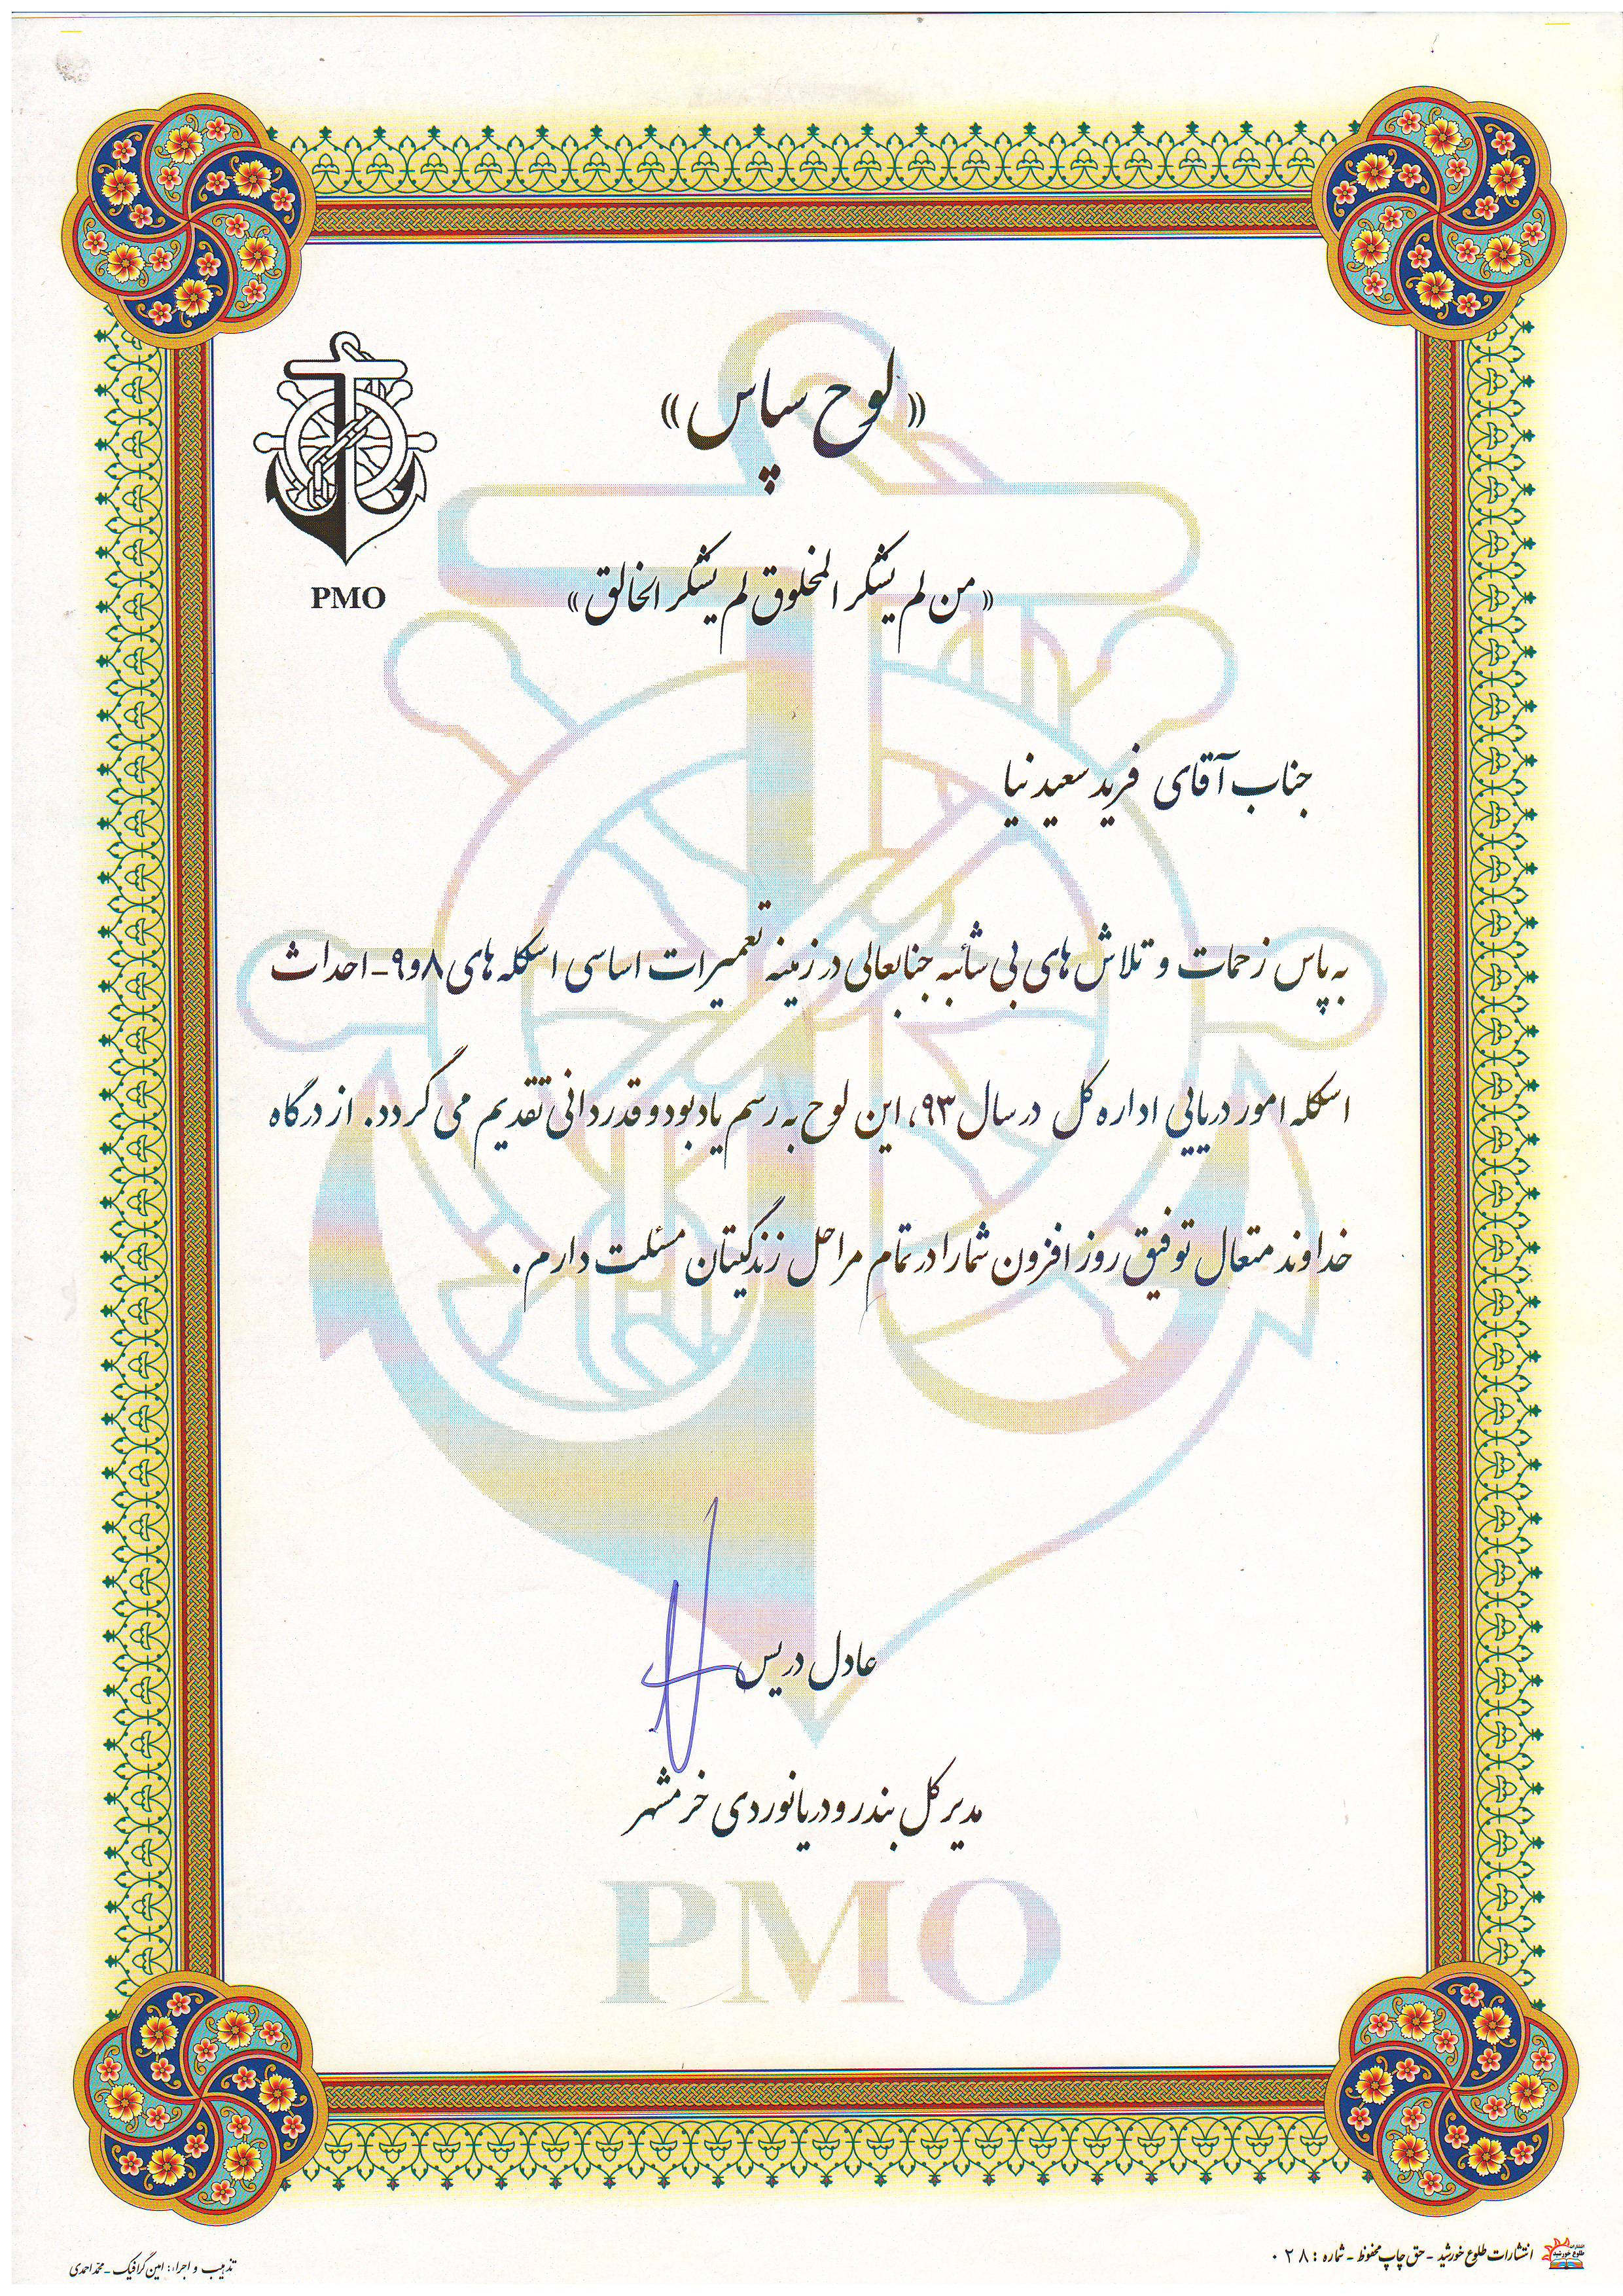 «لوح سپاس»
PMO
«من لم یشکر المخلوق لم یشکر الخالق»
جناب آقای فرید سعیدنیا
به پاس زحمات و تلاش های بی شائبه جنابعالی در زمینه تعمیرات اساسی اسکله های ۸و۹-احداث
اسکله امور دریایی اداره کل در سال ۹۳، این لوح به رسم یادبود و قدردانی تقدیم می گردد. از درگاه
خداوند متعال توفیق روز افزون شما را در تمام مراحل زندگیتان مسئلت دارم.
عادل دریس
مدیر کل بندر و دریانوردی خرمشهر
PMO
انتشارات طلوع خورشید - حق چاپ محفوظ - شماره : ۰۲۸
تذهیب و اجراء: امین گرافیک - محمد احمدی